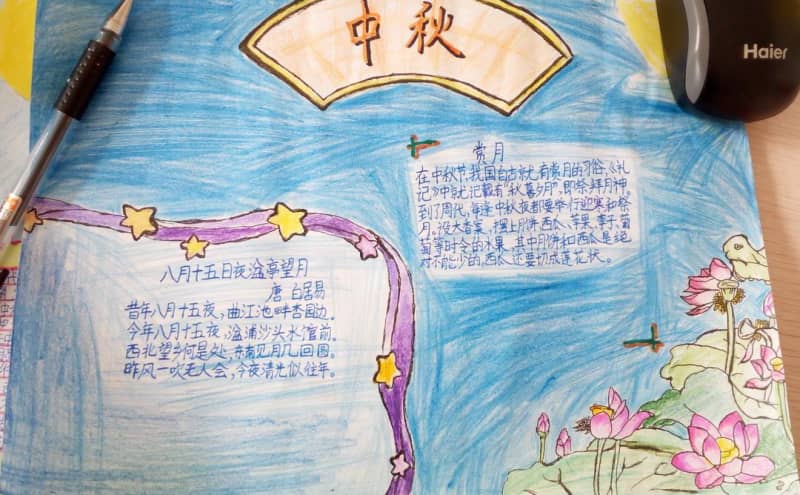 中秋
Haier
赏月
在中秋节,我国自古就有赏月的习俗,《礼
记》中就记载有“秋暮夕月”,即祭拜月神。
到了周代,每逢中秋夜都要举行迎寒和祭
月。设大香案,摆上月饼、西瓜、苹果、李子、葡
萄等时令的水果,其中月饼和西瓜是绝
对不能少的,西瓜还要切成莲花状。
八月十五日夜湓亭望月
唐 白居易
昔年八月十五夜,曲江池畔杏园边。
今年八月十五夜,湓浦沙头水馆前。
西北望乡何是处,东南见月几回圆。
昨风一吹无人会,今夜清光似往年。